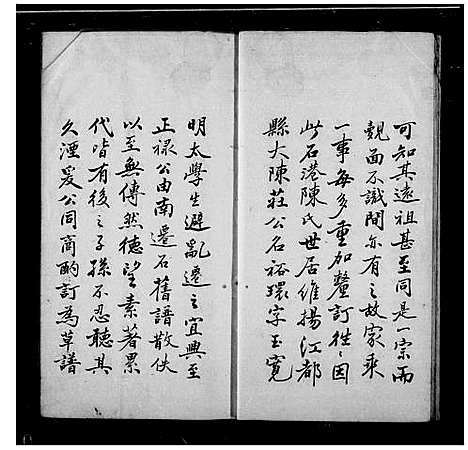 可知其遠祖甚至同是一宗而
覿面不識間亦有之故家乘
一事每多重加釐訂往〻因
此石港陳氏世居維揚江都
縣大陳莊公名裕環字玉寬
明太學生避亂遷之宜興至
正祿公由南遷石舊譜散佚
以至無傳然德望素著累
代皆有後之子孫不忍聽其
久湮爰公同商酌訂為草譜